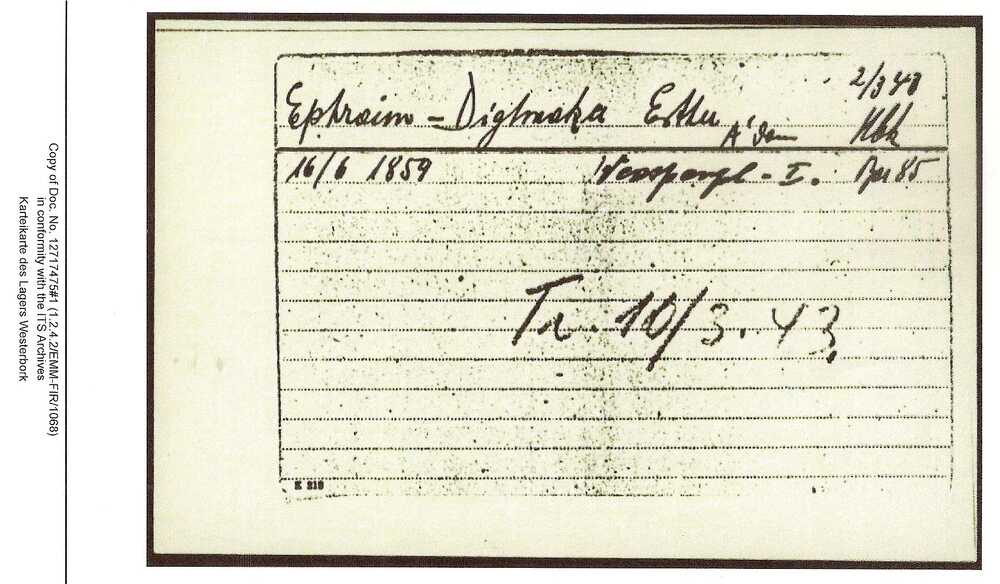 Copy of Doc. No. 12717475#1 (1.2.4.2/EMM-FIR/1068)
in conformity with the ITS Archives
Karteikarte des Lagers Westerbork
2/3 43
Ephraim - Esther A'dam
16/6 1859 - I. 85
Tr. 10/3. 43
K 210